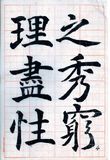 之秀窮
理盡性